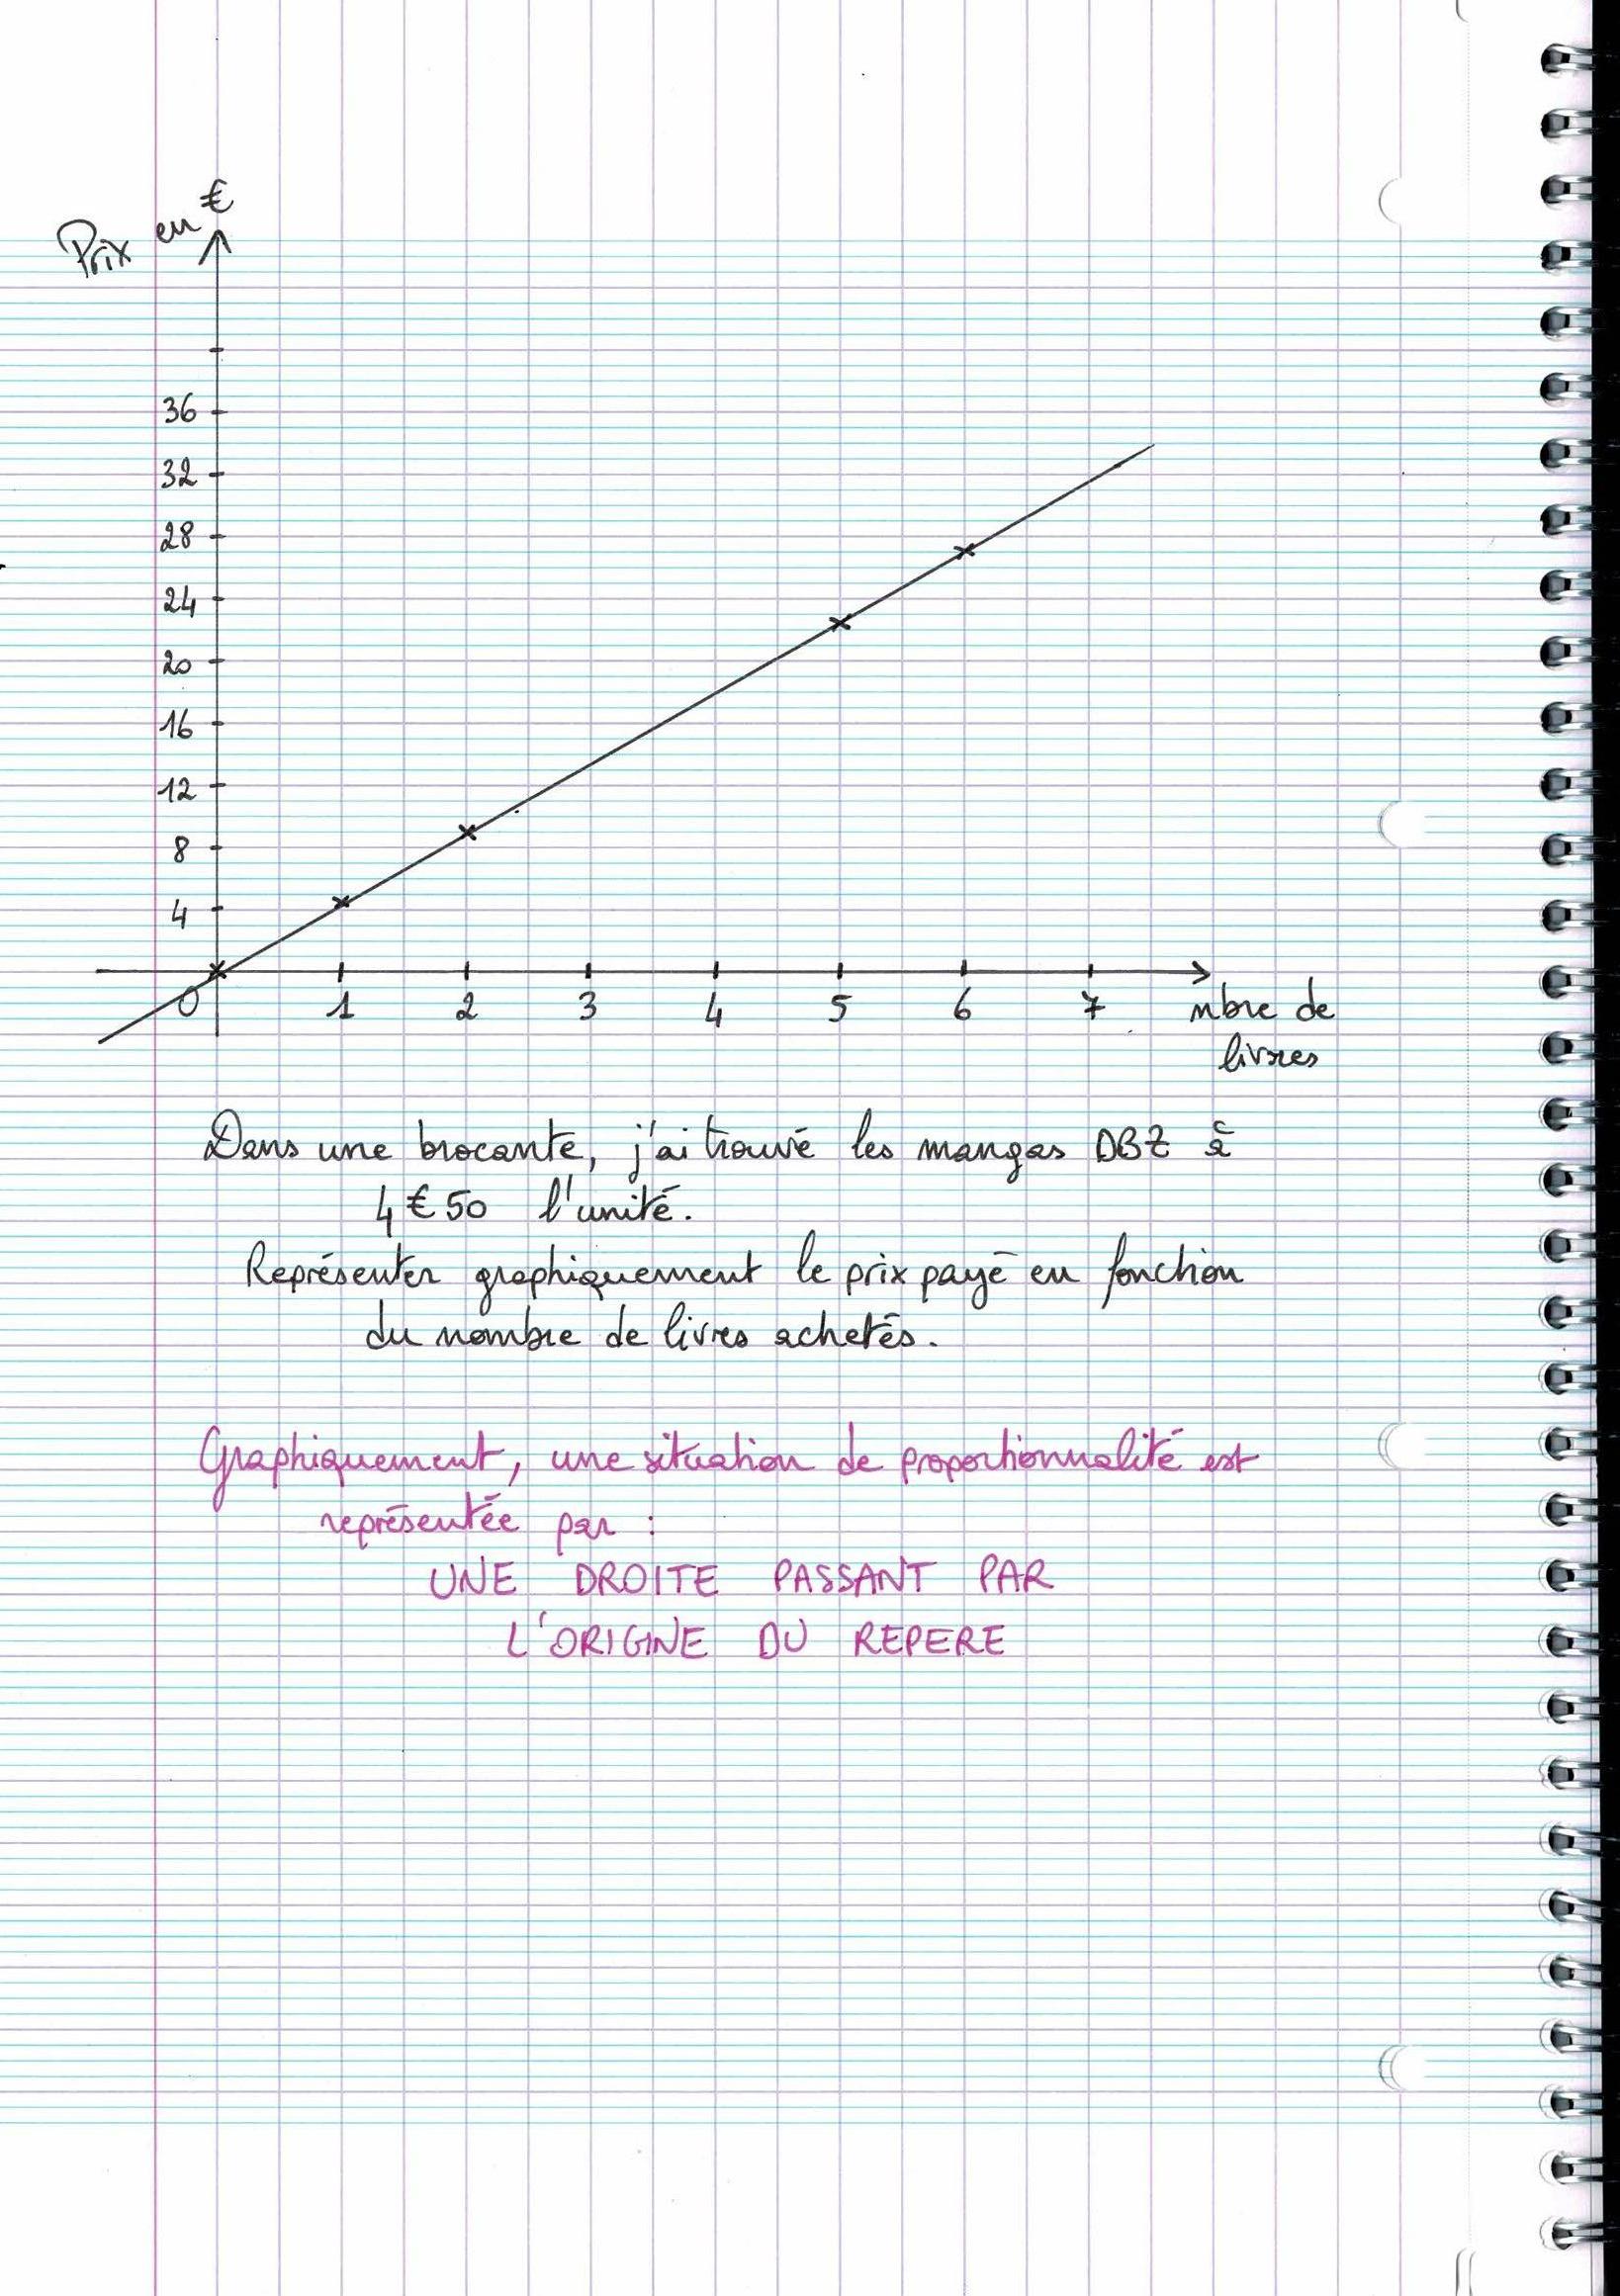 Prix en €
36
32
28
24
20
16
12
8
4
0 1 2 3 4 5 6 7 nbre de
livres
Dans une brocante, j'ai trouvé les mangas DBZ à
4€50 l'unité.
Représenter graphiquement le prix payé en fonction
du nombre de livres achetés.
Graphiquement, une situation de proportionnalité est
représentée par :
UNE DROITE PASSANT PAR
L'ORIGINE DU REPERE